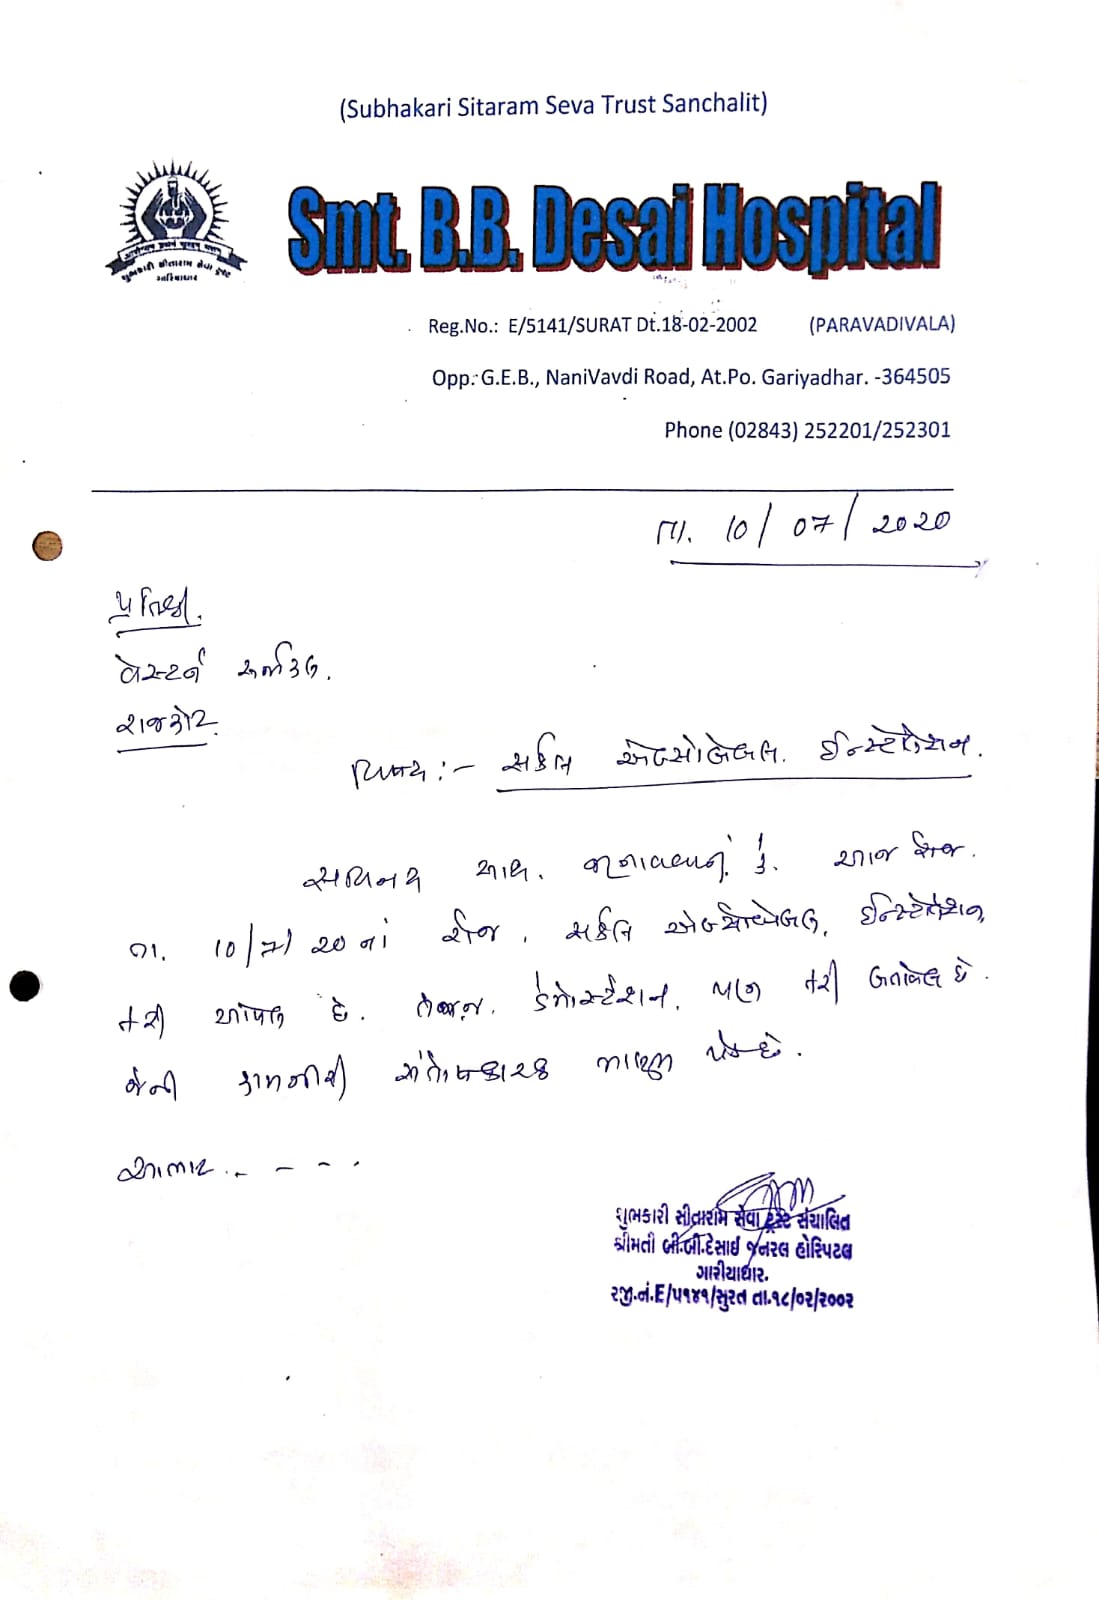 (Subhakari Sitaram Seva Trust Sanchalit)
Smt. B.B. Desai Hospital
શુભકારી સીતારામ સેવા ટ્રસ્ટ
ગારિયાધાર
Reg.No.: E/5141/SURAT Dt.18-02-2002 (PARAVADIVALA)
Opp: G.E.B., NaniVavdi Road, At.Po. Gariyadhar. -364505
Phone (02843) 252201/252301
તા. 10/07/2020
પ્રતિશ્રી.
વેસ્ટર્ન સર્જીકલ.
રાજકોટ.
વિષય :- સર્કલ એબ્સોલ્બેબલ ઈન્સ્ટોલેશન.
સવિનય સાથ. જણાવવાનું કે. આજ રોજ.
તા. 10/7/20 નાં રોજ, સર્કલ ઈન્સ્ટોલેશન
કરી આપેલ છે. તેમજ. ડેમોસ્ટ્રેશન. પણ કરી બતાવેલ છે.
જેની કામગીરી સંતોષકારક માલુમ પડેલ છે.
આભાર. - - - .
શુભકારી સીતારામ સેવા ટ્રસ્ટ સંચાલિત
શ્રીમતી બી.બી.દેસાઈ જનરલ હોસ્પિટલ
ગારીયાધાર.
રજી.નં.E/૫૧૪૧/સુરત તા.૧૮/૦૨/૨૦૦૨